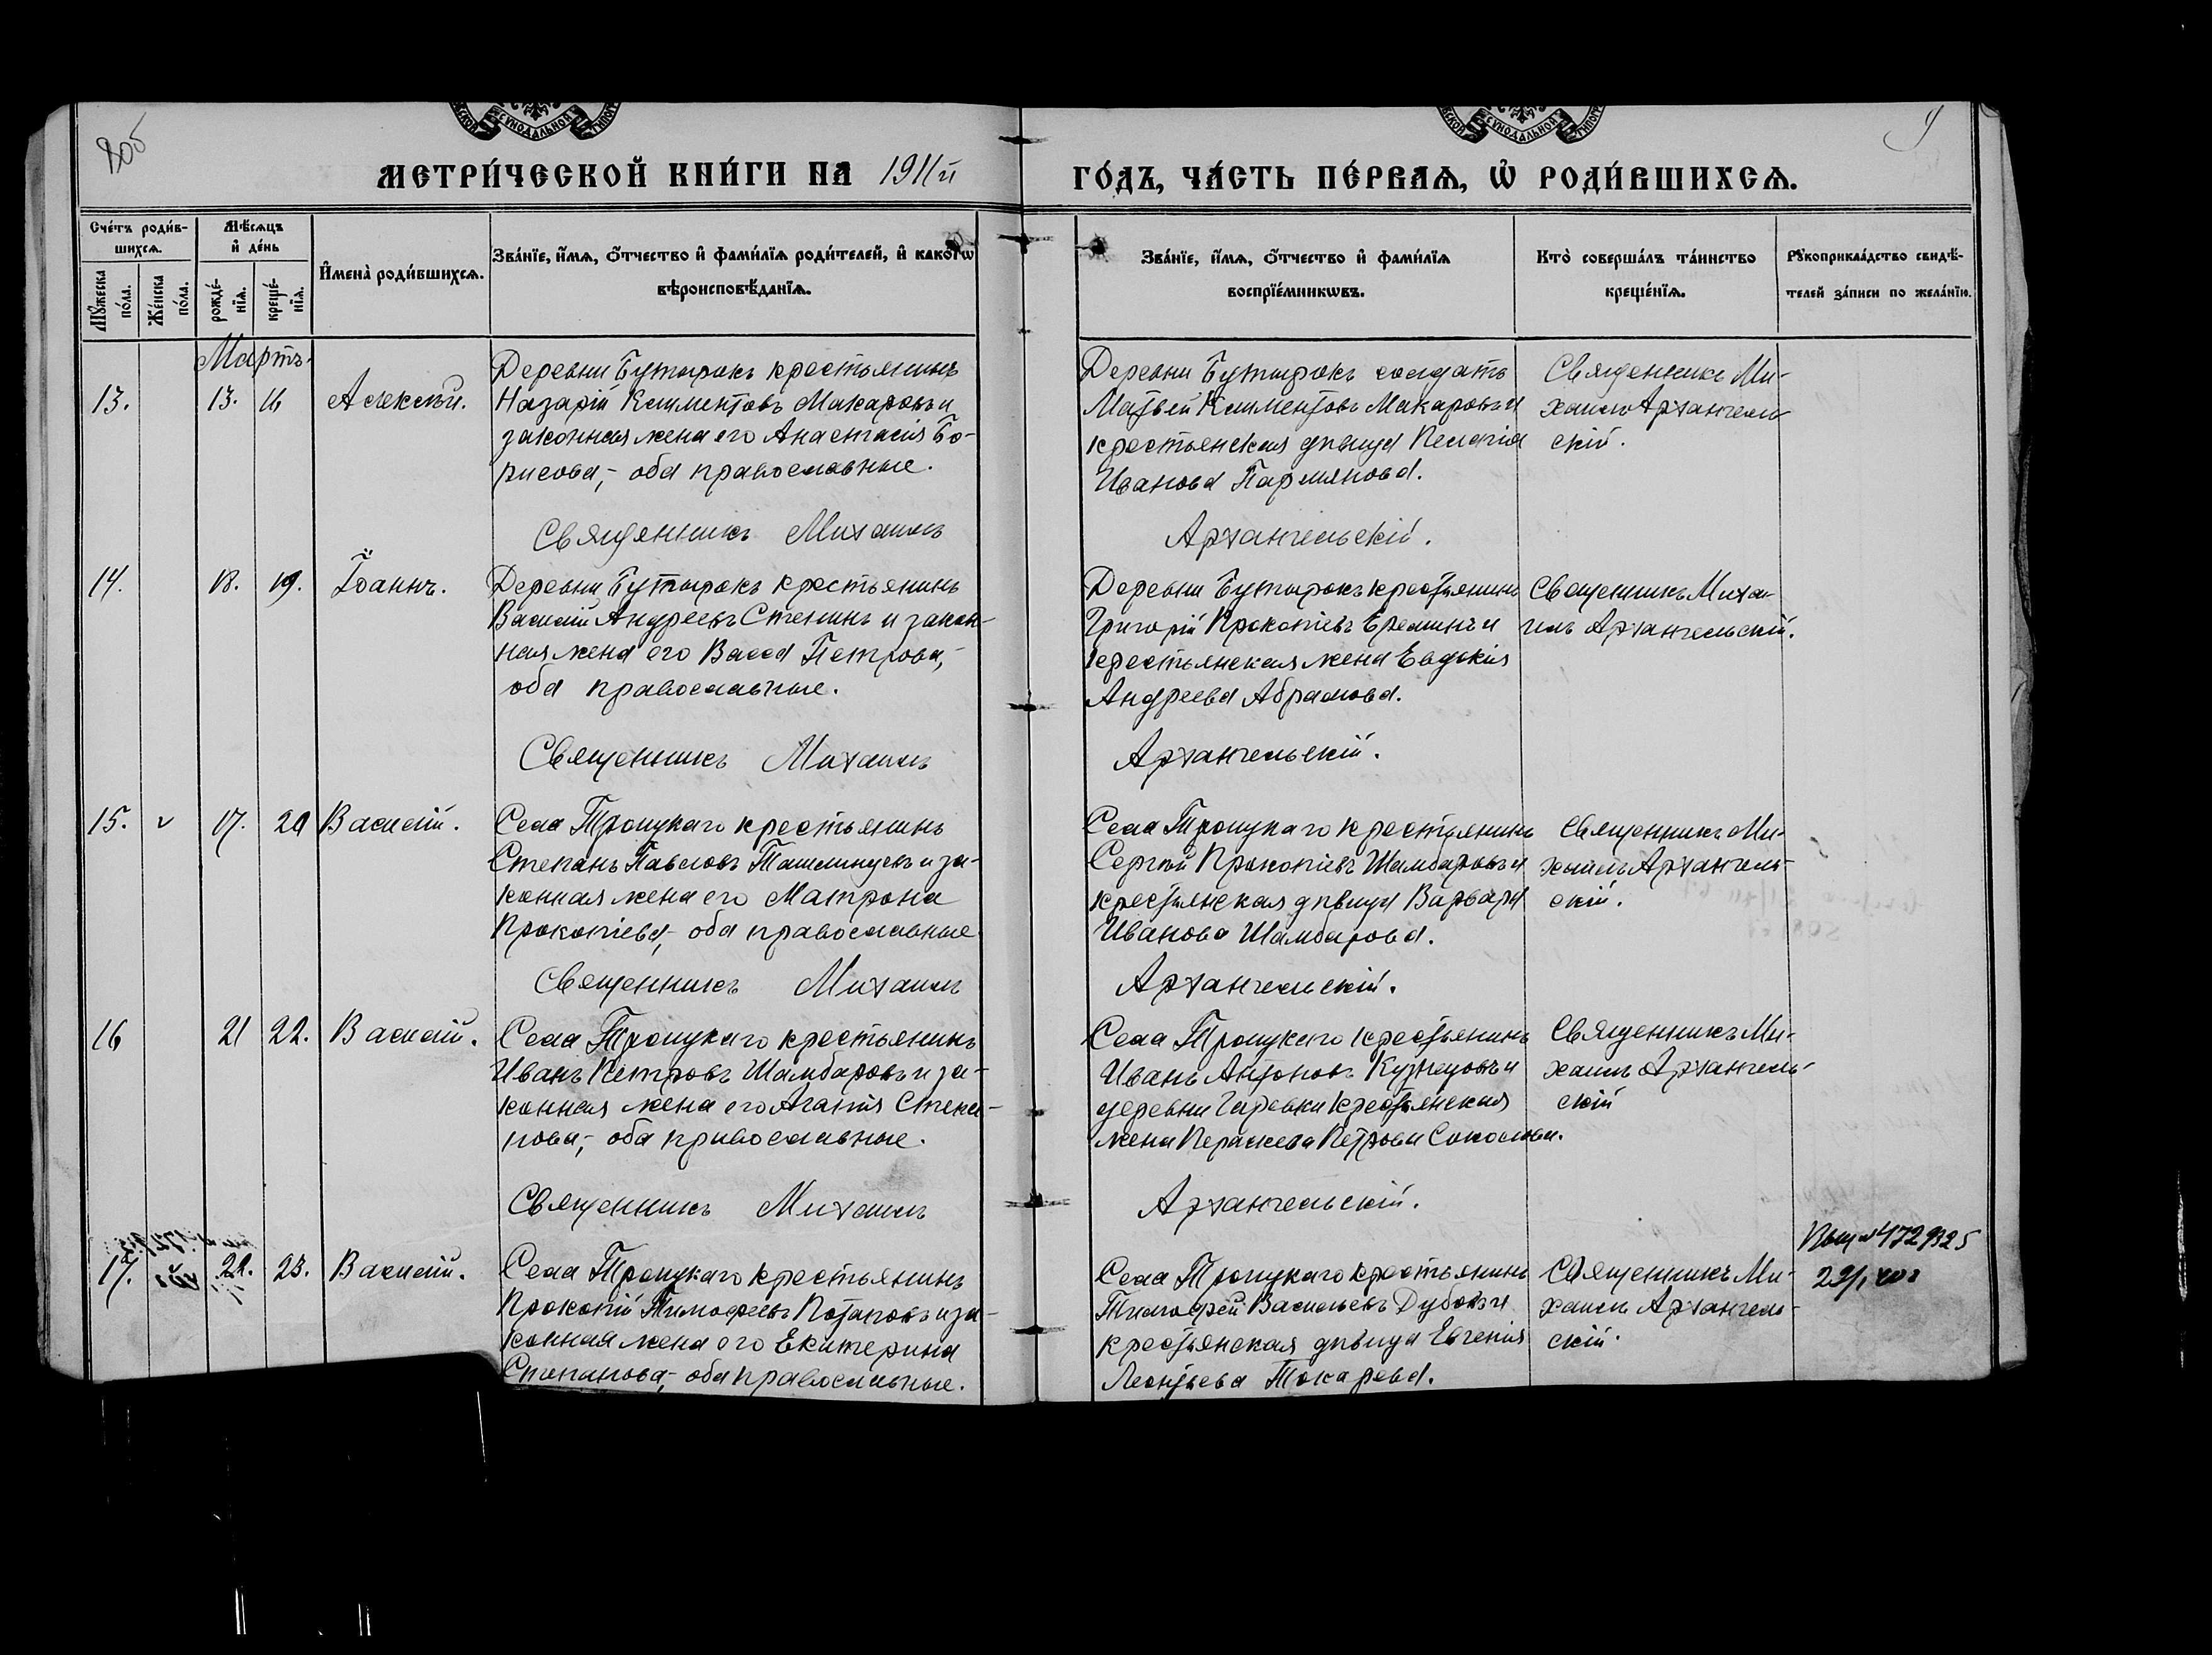 805
9
СѴНОДАЛЬНОЙ
СѴНОДАЛЬНОЙ
МЕТРИ́ЧЕСКОЙ КНИ́ГИ НА 1911й ГО́ДЪ, ЧА́СТЬ ПЕ́РВАѦ, Ѡ҆ РОДИ́ВШИХСѦ.
Сче́тъ роди́в-
шихсѧ.
Мѣ́сѧцъ
и҆ де́нь
Мꙋ́жеска по́ла.
Же́нска по́ла.
рожде́-
нїѧ.
креще́-
нїѧ.
И҆мена̀ роди́вшихсѧ.
Зва́нїе, и҆́мѧ, ѻ҆́тчество и҆ фами́лїѧ роди́телей, и҆ како́гѡ
вѣроисповѣ́данїѧ.
Зва́нїе, и҆́мѧ, ѻ҆́тчество и҆ фами́лїѧ
воспрїе́мникѡвъ.
Кто̀ соверша́лъ та́инство
креще́нїѧ.
Рꙋкоприкла́дство свидѣ́-
телей за́писи по жела́нїю.
Мартъ.
13.
13. 16
Алексѣй.
Деревни Бутырокъ крестьянинъ
Назарій Климентовъ Макаровъ и
законная жена его Анастасія Бо-
рисова,- оба православные.
Деревни Бутырокъ солдатъ
Матвей Климентовъ Макаровъ и
крестьянская дѣвица Пелагія
Иванова Пармянова.
Священникъ Ми-
хаилъ Архангель-
скій.
Священникъ Михаилъ Архангельскій.
14.
18. 19.
Іоаннъ.
Деревни Бутырокъ крестьянинъ
Василій Андреевъ Стенинъ и закон-
ная жена его Васса Петрова,-
оба православные.
Деревни Бутырокъ крестьянинъ
Григорій Прокопіевъ Ереминъ и
крестьянская жена Евдокія
Андреева Абрамова.
Священникъ Миха-
илъ Архангельскій.
Священникъ Михаилъ Архангельскій.
15. v
17. 20
Василій.
Села Троицкаго крестьянинъ
Степанъ Павловъ Ташлинцевъ и за-
конная жена его Матрона
Прокопіева,- оба православные
Села Троицкаго крестьянинъ
Сергѣй Прокопіевъ Шамбаровъ и
крестьянская дѣвица Варвара
Иванова Шамбарова.
Священникъ Ми-
хаилъ Архангель-
скій.
Священникъ Михаилъ Архангельскій.
16
21 22.
Василій.
Села Троицкаго крестьянинъ
Иванъ Петровъ Шамбаровъ и за-
конная жена его Агапія Степа-
нова,- оба православные.
Села Троицкаго крестьянинъ
Иванъ Антоновъ Кузнецовъ и
деревни Гаревки крестьянская
жена Параскева Петрова Соколова.
Священникъ Ми-
хаилъ Архангель-
скій
Священникъ Михаилъ Архангельскій.
17.
22. 23.
Василій.
Села Троицкаго крестьянинъ
Прокопій Тимофеевъ Потаповъ и за-
конная жена его Екатерина
Степанова,- оба православные.
Села Троицкаго крестьянинъ
Тимофей Васильевъ Дубовъ и
крестьянская дѣвица Евгенія
Леонтьева Токарева.
Священникъ Ми-
хаилъ Архангель-
скій.